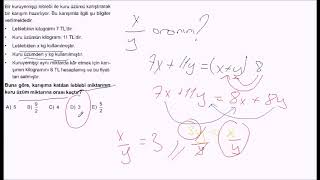 Bir kuruyemişçi leblebi ile kuru üzümü karıştırarak
bir karışım hazırlıyor. Bu karışımla ilgili şu bilgiler
verilmektedir.
• Leblebinin kilogramı 7 TL'dir.
• Kuru üzümün kilogramı 11 TL'dir.
• Leblebiden x kg kullanılmıştır.
• Kuru üzümden y kg kullanılmıştır.
• Kuruyemişçi aynı miktarda kâr etmek için karışımın
kilogramını 8 TL hesaplamış ve bu fiyattan
satmıştır.
Buna göre, karışıma katılan leblebi miktarının
kuru üzüm miktarına oranı kaçtır?
A) 5 B) 9/2 C) 4 D) 3 E) 5/2
x/y oranını?
7x+11y=(x+y)8
7x+11y=8x+8y
x/y = 3